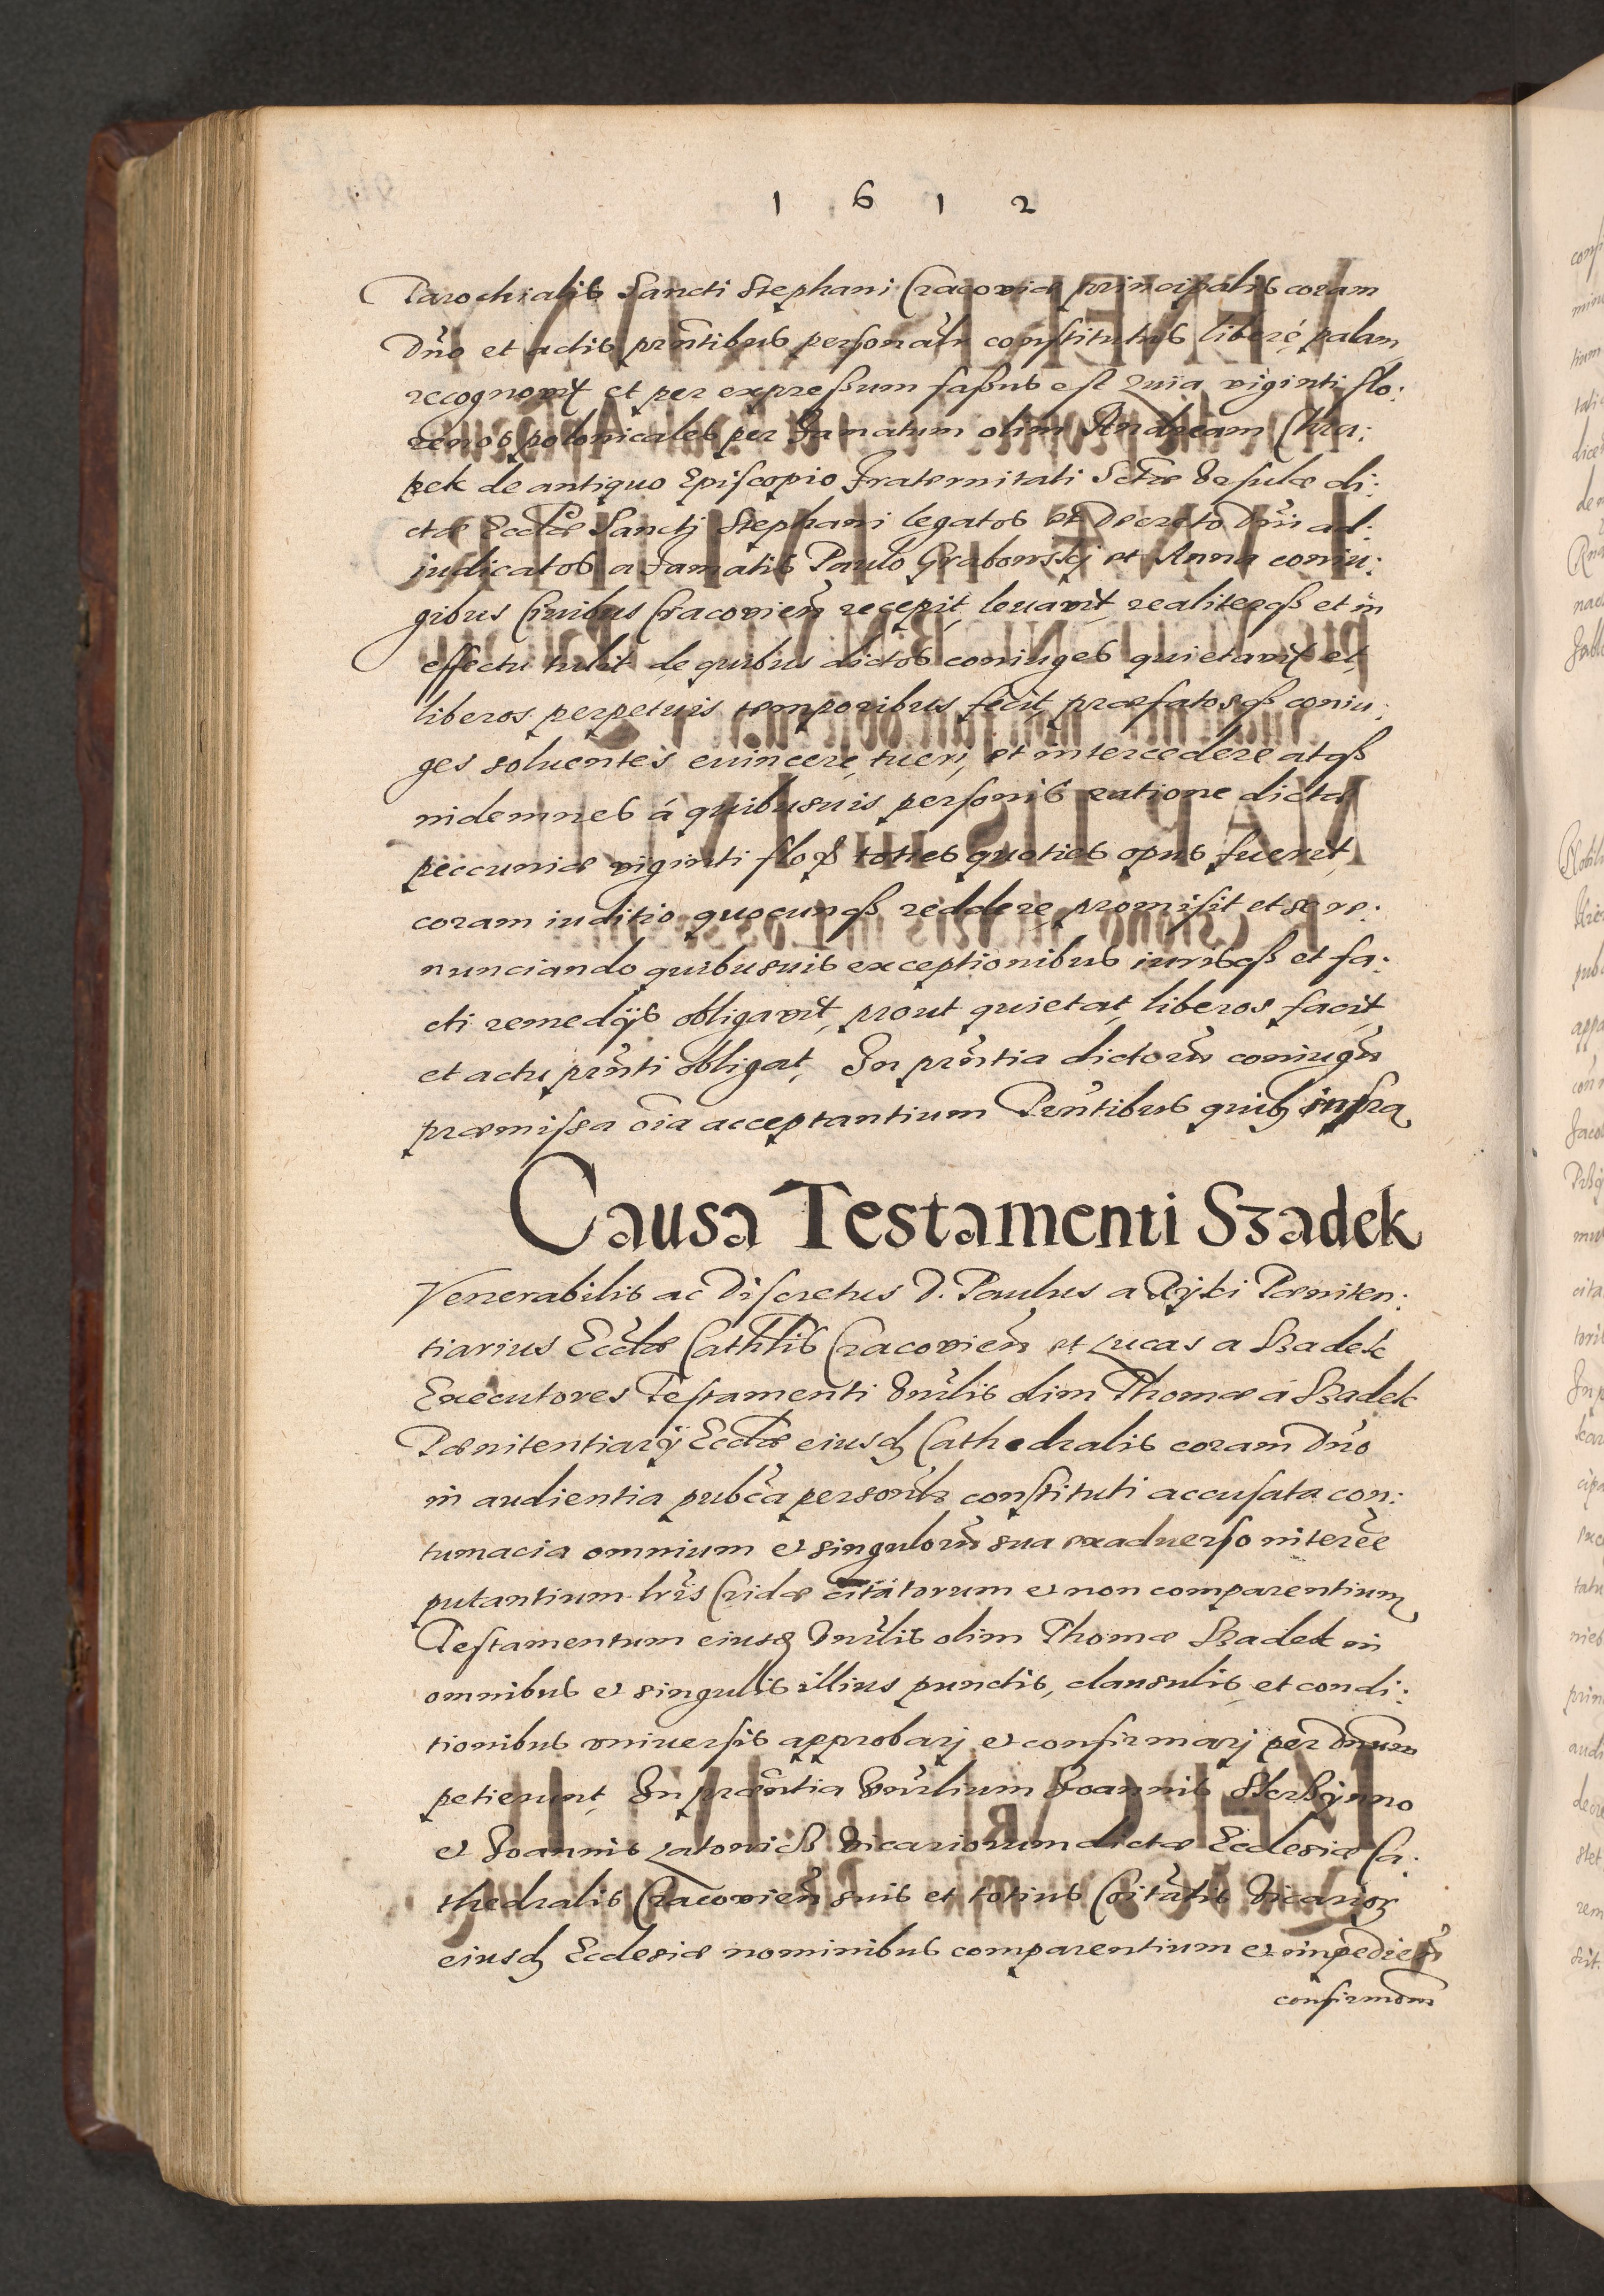 1 6 1 2
Parochialis Sancti Stephani Cracoviæ principalis coram
Dño et actis prñtibus personalr constitutus liberé palam
recognovit et per expreßum faßus est Quia viginti flo:
renos polonicales per Famatum olim Andream Chra:
pek de antiquo Episcopio Fraternitati Sctæ Vrsulæ di:
ctæ Eccliæ Sanctj Stephani legatos et Decreto Dñi ad:
iudicatos a Famatis Paulo Grabowskj et Anna coniu:
gibus Civibus Cracovien̄ recepit, levavit, realiterqß et in
effectu tulit, de quibus dictos coniuges quietavit et,
liberos perpetuis temporibus fecit, præfatosqß coniu:
ges soluentes evincere, tueri, et intercedere atqß
indemnes á quibusuis personis ratione dictæ
peccuniæ viginti flor toties quoties opus fuerit,
coram iuditio quocunqß reddere promisit et se re:
nunciando quibusuis exceptionibus iurisqß et fa:
cti remedijs obligavit, prout quietat, liberos facit,
et actu prñti obligat, In prñtia dictorū coniugū
præmissa oīa acceptantium Prñtibus quib9 infra
Causa Testamenti Szadek
Venerabilis ac Discretus D. Paulus a Rijki Pæniten:
tiarius Eccliæ Cathlis Cracovien̄ et Lucas a Szadek
Executores Testamenti Vnrlis olim Thomæ á Szadek
Pænitentiarij Eccliæ eiusd Cathedralis coram Dño
in audientia pubca personlr constituti accusata con:
tumacia omnium et singulorū sua exaduerso intereē
putantium lrīs Cridæ citatorum et non comparentium
Testamentum eiusd Vnrlis olim Thomæ Szadek in
omnibus et singulis illius punctis, clausulis, et condi:
tionibus vniversis approbarj et confirmarj per Dnum
petierunt, In præntia Vnrlium Joannis
et Joannis vicariorum dictæ Ecclesiæ Ca:
thedralis Cracovien̄ suis et totius Coitatis Vicarior
eiusd Ecclesiæ nominibus comparentium et impedien̄
confirmaom